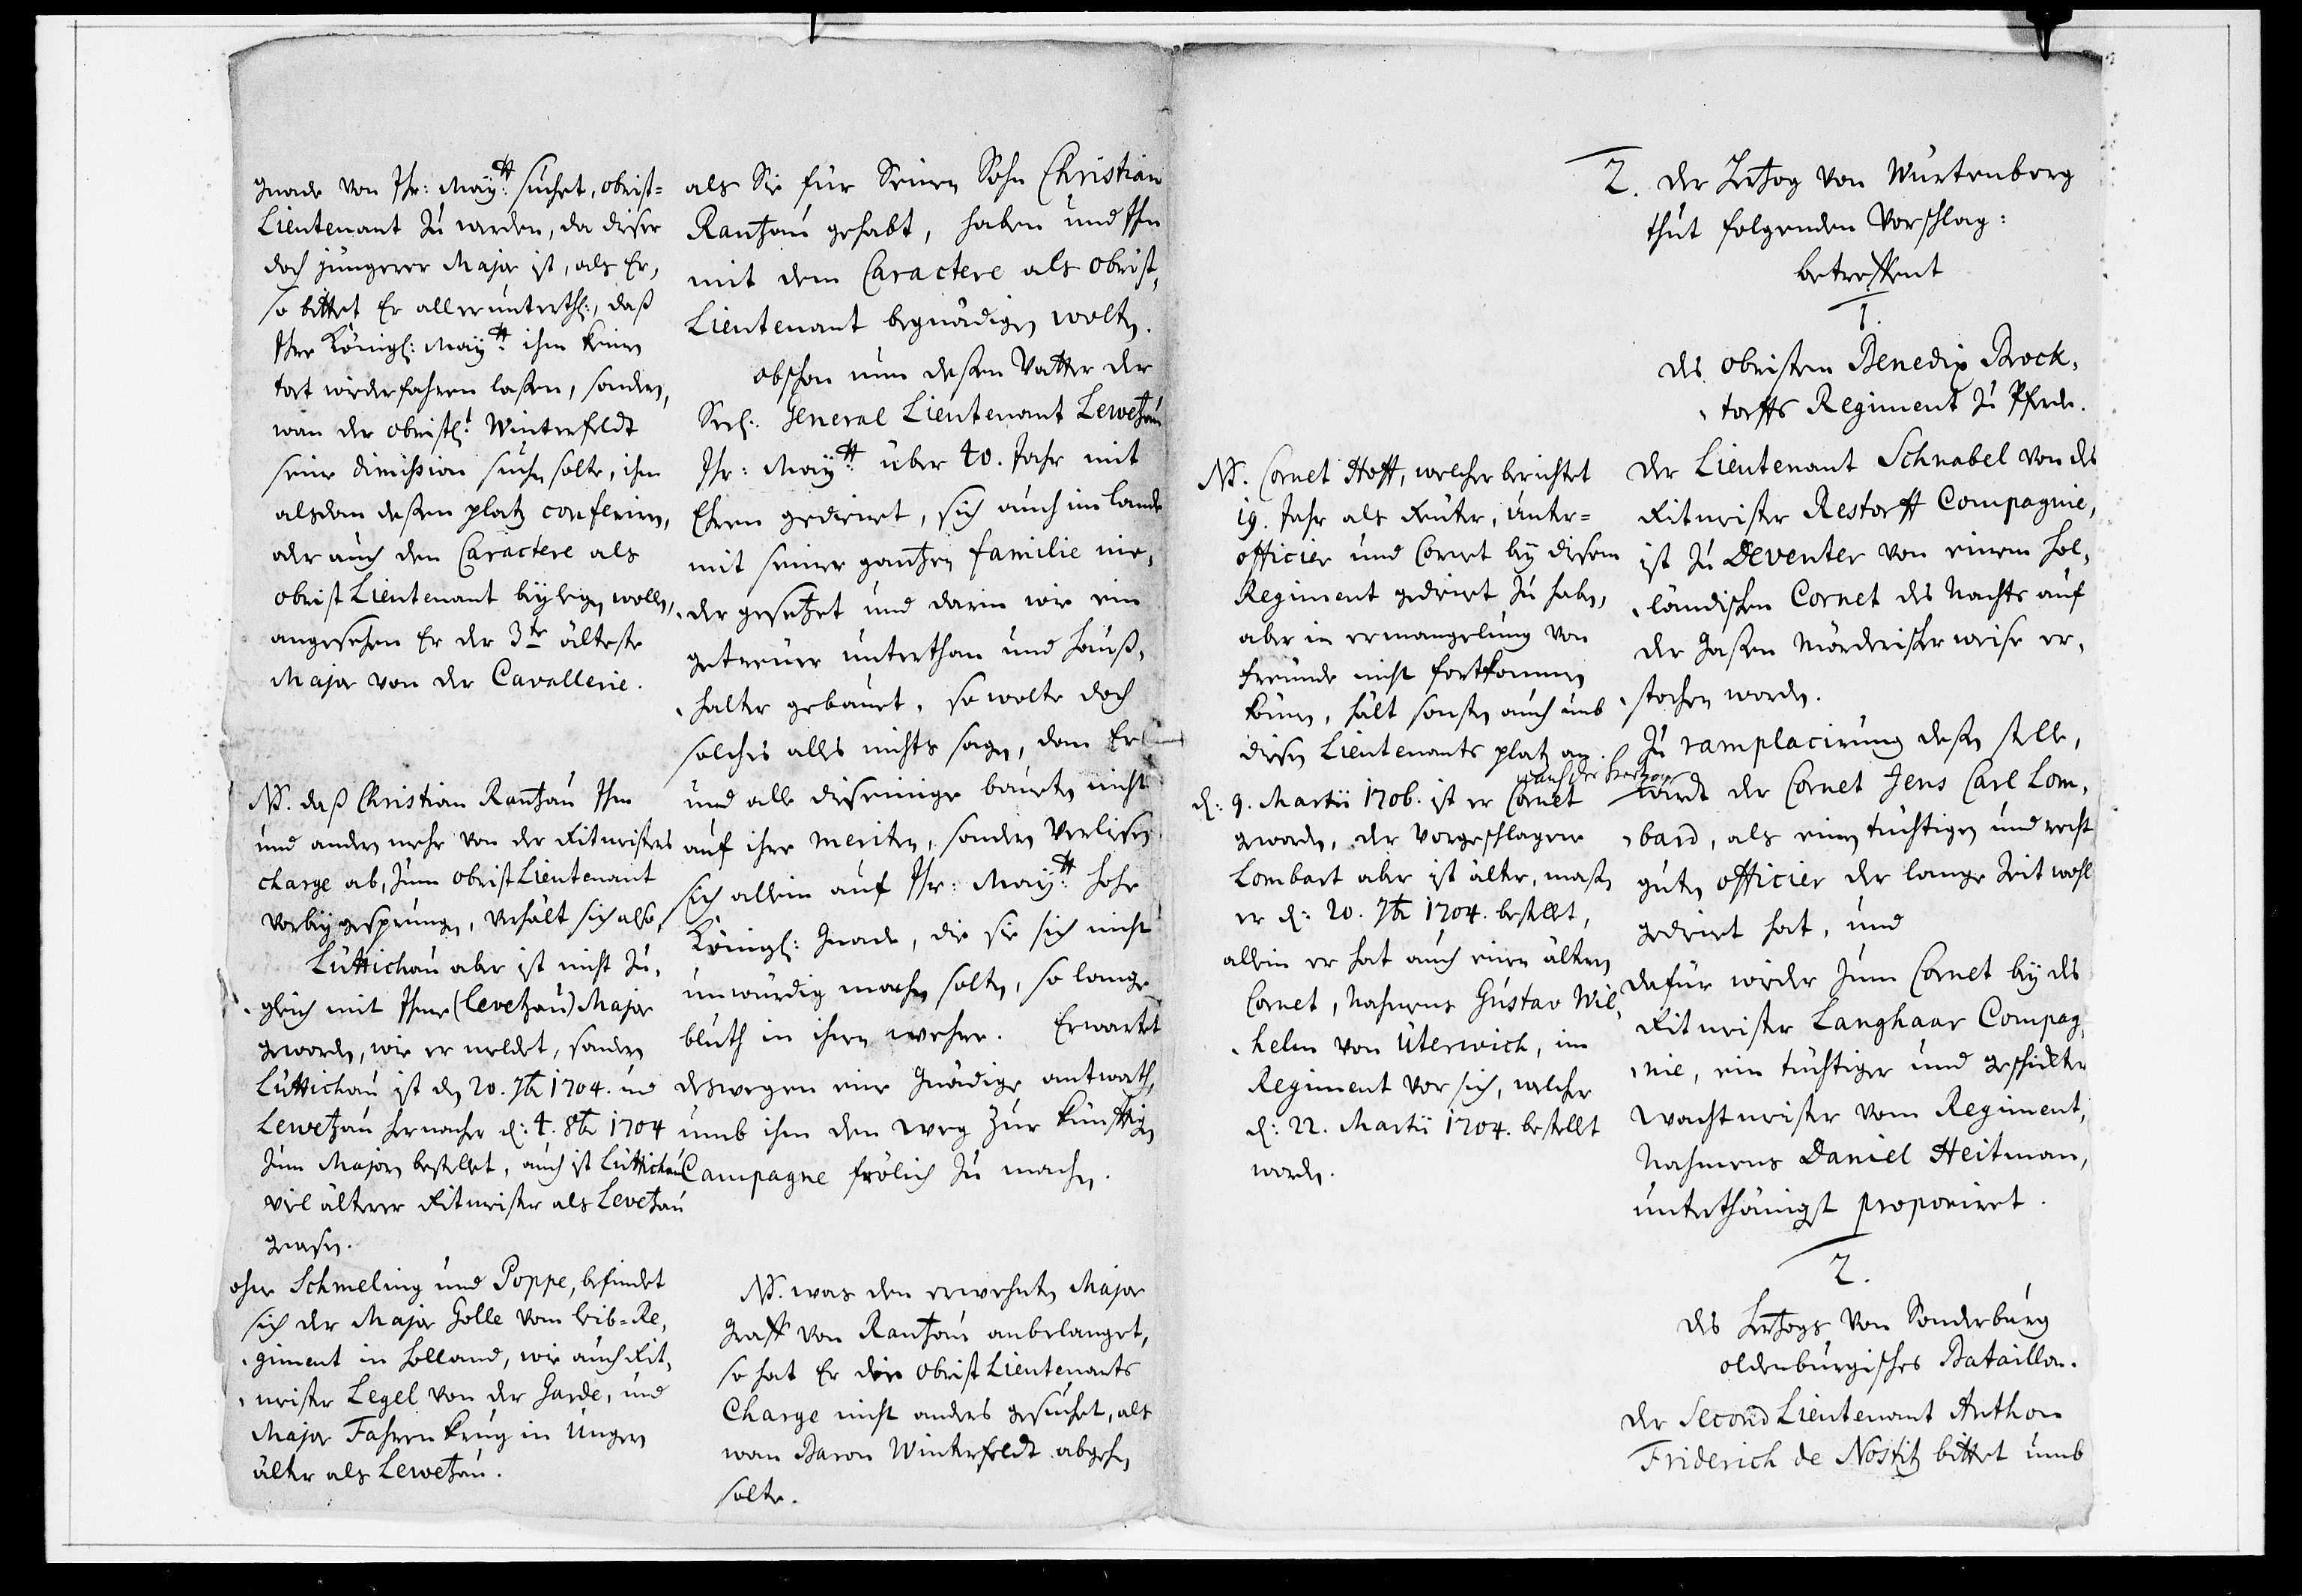 gnade von Ihr: Maytt: suchet, obrist=
Lieutenant zu werden, da dieser
doch jüngerer Major ist, als Er,
so bittet Er allerunterthl:, daß
Ihre Königl: Maytt: ihm keinen
tort wiederfahren laßen, sondern,
wan der obristl: Winterfeldt
seine dimission suchen solte, ihm
alsdan deßen platz conferiren,
oder auch den Caractere als
obrist Lieutenant beylegen wollen,
angesehen Er der 3te älteste
Major von der Cavallerie.
NB. daß Christian Rantzau Ihm
und andern mehr von der Ritmeisters
charge ab, zum obrist Lieutenant
vorbey gesprungen, verhält sich also,
Lüttichau aber ist nicht zu,
gleich mit Ihme (Levetzau) Major
geworden, wie er meldet, sondern
Lüttichau ist den 20. 7br 1704. und
Lewetzau hernacher d: 4. 8br 1704
zum Majorn bestellet, auch ist Lüttichau
viel älterer Ritmeister als Levetzau
gewesen.
ohne Schmeling und Poppe, befindet
sich der Major Holle vom leib=Re,
giment in Holland, wie auch Rit,
meister Legel von der Garde, und
Major Fahrenkrug in Ungern
älter als Lewetzau.
als Sie für Seinen Sohn Christian
Rantzau gehabt, haben und Ihn
mit dem Caractere als obrist,
Lieutenant begnädigen wolten.
obschon nun deßen Vatter der
Seel: General Lieutenant Lewetzau
Ihr: Maytt: über 40. Jahr mit
Ehren gedienet, sich auch im Lande
mit seiner gantzen familie nie,
der gesetzet und darin wie ein
getreuer unterthan und hauß,
halter gebauet, so wolte doch
solches alles nichts sagen, dan Er
und alle diejenige bauten nicht
auf ihre meriten, sondern verließen
sich allein auf Ihr: Maytt: hohe
Königl: Gnade, die sie sich nicht
unwürdig machen solten, so lange
bluth in ihnen wehre. Erwartet
deswegen eine gnädige antworth,
umb ihm den weg zur künfftigen
Campagne frölich zu machen.
NB. was den erwehnten Major
Graff von Rantzau anbelanget,
so hat Er die obrist Lieutenants
Charge nicht anders gesuchet, als
wan Baron Winterfeldt abgehen
solte.
2. Der Hertzog von Würtenberg
thut folgenden Vorschlag:
betreffent
1.
des obristen Benedix Brock,
torffs Regiment zu Pferde.
NB. Cornet Hoff, welcher berichtet
19. Jahr als Reuter, Unter=
officier und Cornet bey diesem
Regiment gedienet zu haben,
aber in ermangelung von
freunde nicht fortkommen
können, hält sonsten auch umb
diesen Lieutenants platz an.
d: 9. Martii 1706. ist er Cornet
geworden, der vorgeschlagene
Lombart aber ist älter, maßen
er d: 20. 7br 1704. bestellt,
allein er hat auch einen ältern
Cornet, Nahmens Gustav Wil,
helm von Üterwich, im
Regiment vor sich, welcher
d: 22. Martii 1704. bestellt
worden.
Der Lieutenant Schnabel von des
Ritmeister Restorff Compagnie,
ist zu Deventer von einem hol,
ländischen Cornet des Nachts auf
der Gaßen Mörderischer weise er,
stochen worden.
Zu ramplacirung deßen stelle,
wirdt der Cornet Jens Carl Lom,
bard, als einen tüchtigen und recht
guten officier der lange Zeit wohl
gedient hat, und
dafür wieder zum Cornet bey des
Ritmeister Langhaar Compag,
nie, ein tüchtiger und geschickter
Wachtmeister vom Regiment,
Nahmens Daniel Heitman,
unterthänigst proponiret.
2.
des Hertzogs von Sonderburg
oldenburgisches Bataillon.
Der Second Lieutenant Anthon
Friderich de Nostitz bittet umb